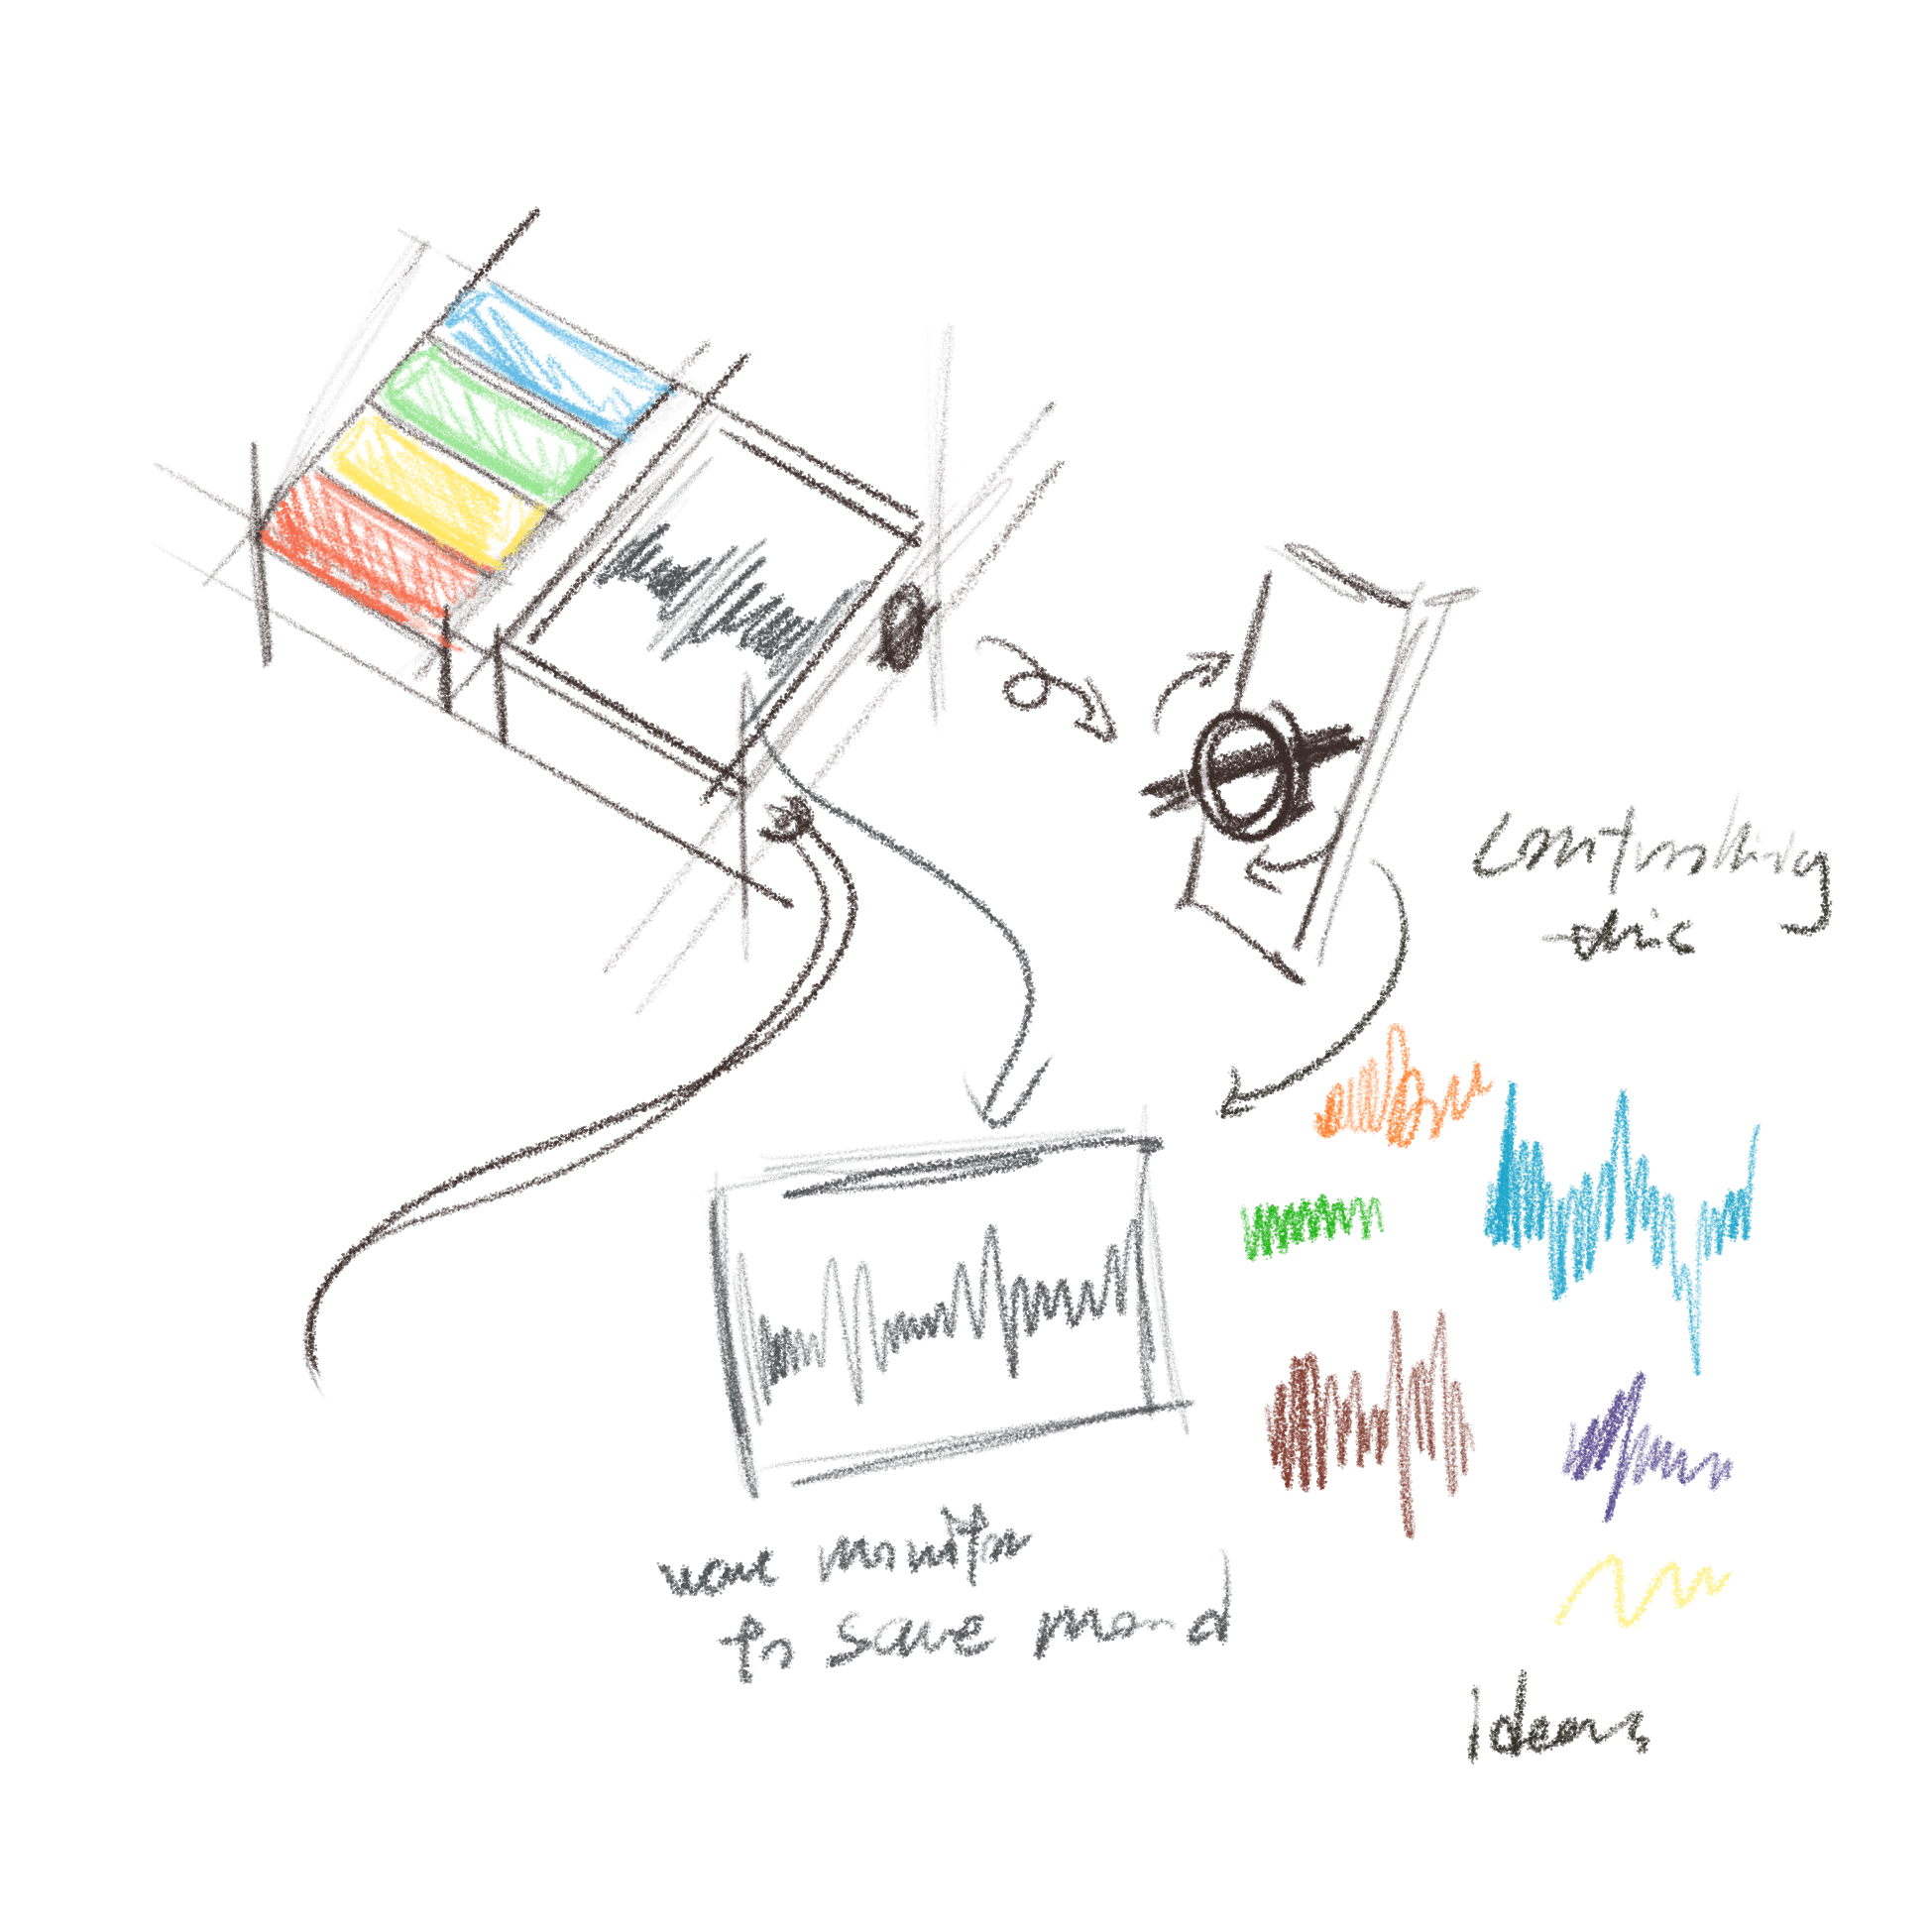 controlling
disc
wave monitor
to save mond
Ideas